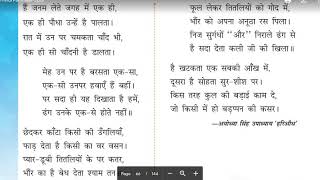 हैं जनम लेते जगह में एक ही,
एक ही पौधा उन्हें है पालता।
रात में उन पर चमकता चाँद भी,
एक ही सी चाँदनी है डालता।
मेह उन पर है बरसता एक-सा,
एक-सी उनपर हवाएँ हैं बहीं।
पर सदा ही यह दिखाता है हमें,
ढंग उनके एक-से होते नहीं॥
छेदकर काँटा किसी की उँगलियाँ,
फाड़ देता है किसी का वर वसन।
प्यार-डूबी तितलियों के पर कतर,
भौंर का है बेध देता श्याम तन
फूल लेकर तितलियों को गोद में,
भौंर को अपना अनूठा रस पिला।
निज सुगंधों "और" निराले ढंग से
है सदा देता कली जी की खिला।
है खटकता एक सबकी आँख में,
दूसरा है सोहता सुर-शीश पर।
किस तरह कुल की बड़ाई काम दे,
जो किसी में हो बड़प्पन की कसर।
—अयोध्या सिंह उपाध्याय 'हरिऔध'
66 / 144